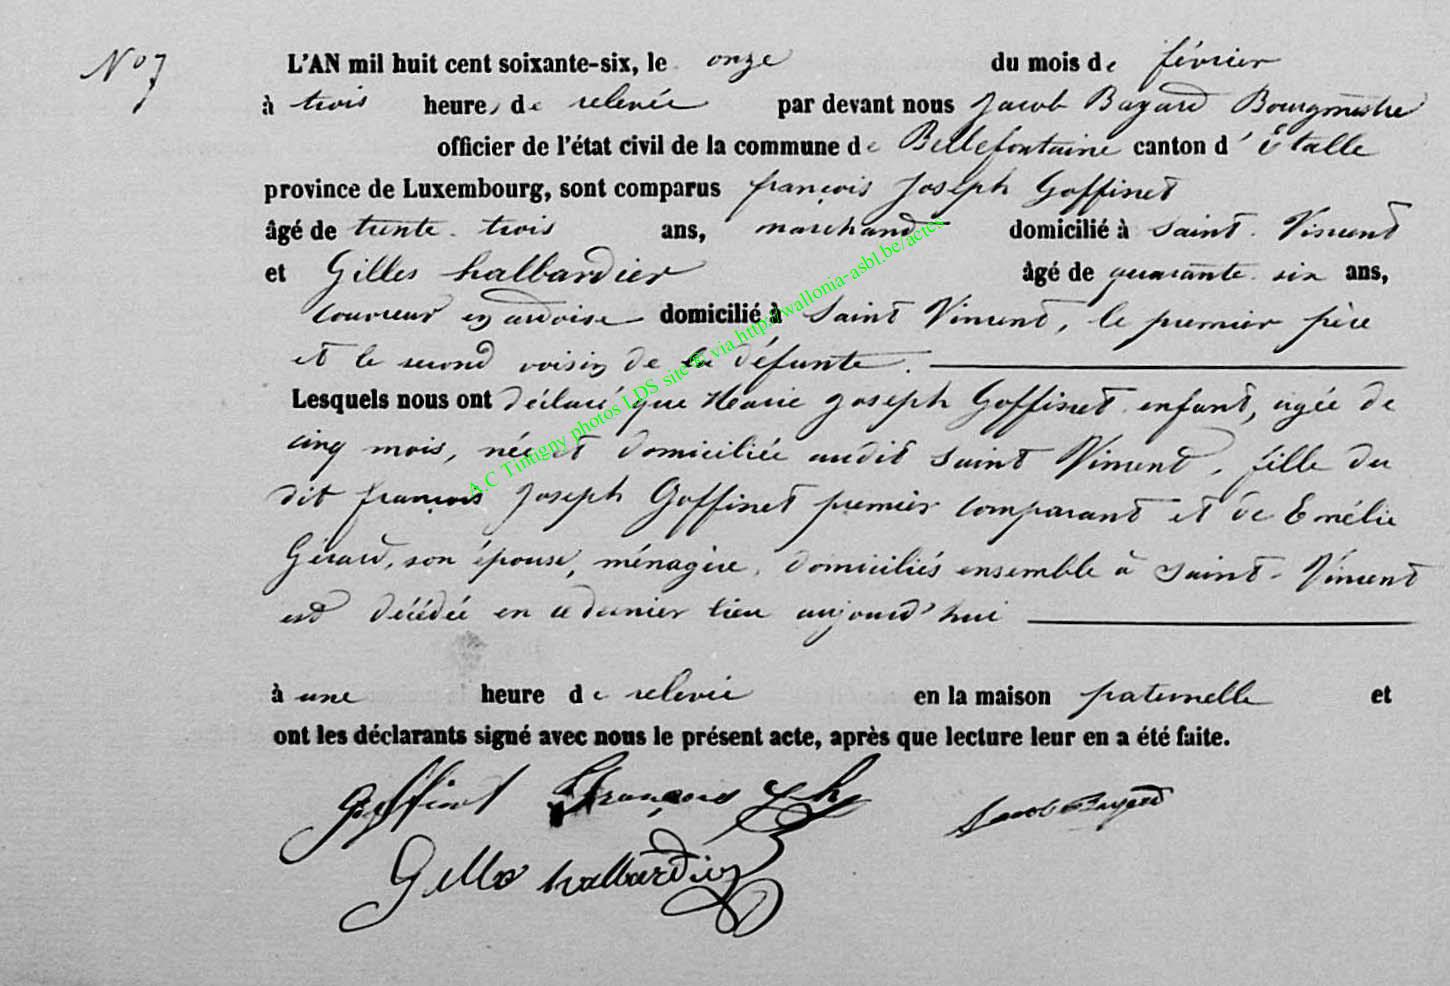 No 7
L'AN mil huit cent soixante-six, le onze du mois de février
à trois heures de relevée par devant nous Jacob Bayard Bourgmestre
officier de l'état civil de la commune de Bellefontaine canton d'Etalle
province de Luxembourg, sont comparus françois Joseph Goffinet
âgé de trente-trois ans, marchand domicilié à Saint-Vincent
et Gilles halbardier âgé de quarante-six ans,
couvreur en ardoise domicilié à Saint Vincent, le premier père
et le second voisin de la défunte.
Lesquels nous ont déclaré que Marie Joseph Goffinet enfant, agée de
cinq mois, née et domiciliée audit Saint Vincent, fille du
dit françois Joseph Goffinet premier comparant et de Emélie
Gérard, son épouse, ménagère, domiciliés ensemble à Saint-Vincent
est décédée en ce dernier lieu aujourd'hui
à une heure de relevée en la maison paternelle et
ont les déclarants signé avec nous le présent acte, après que lecture leur en a été faite.
Goffinet François Jph Jacob Bayard
Gilles halbardier
A.C Tintigny photos LDS site © via http://wallonia-asbl.be/actes